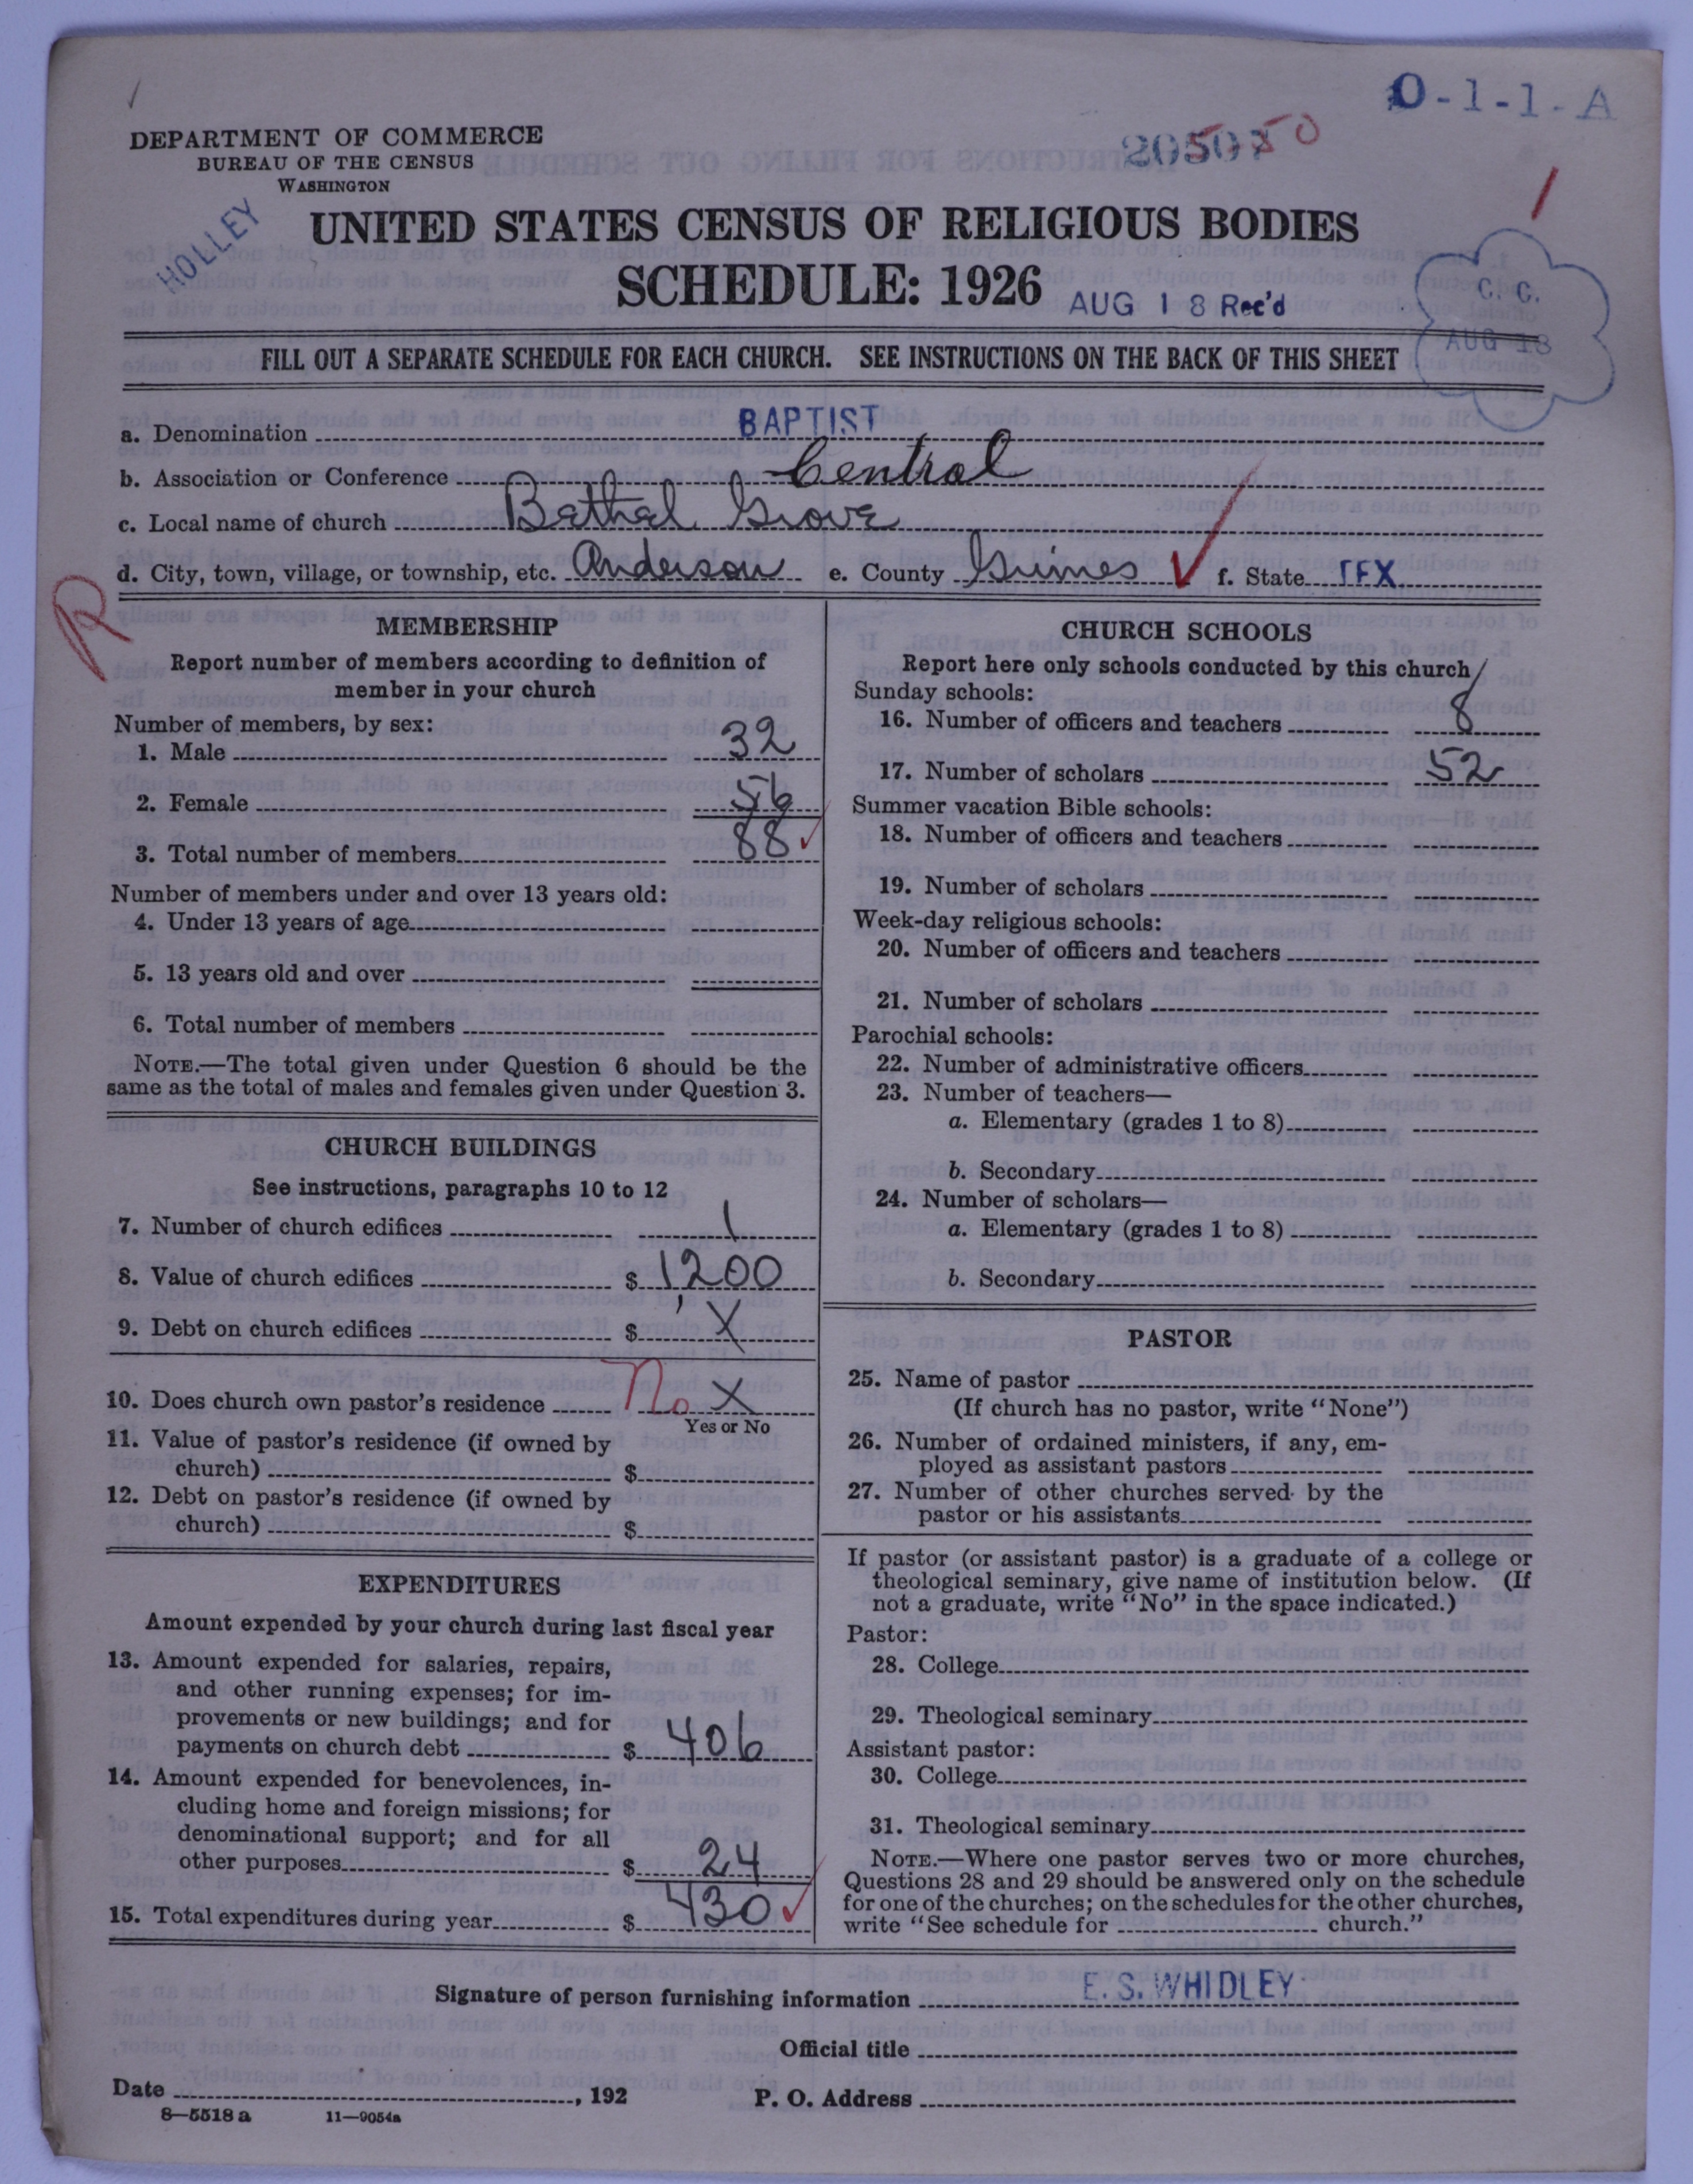 O-1-1-A
DEPARTMENT OF COMMERCE
BUREAU OF THE CENSUS
WASHINGTON
HOLLEY
UNITED STATES CENSUS OF RELIGIOUS BODIES
SCHEDULE: 1926
AUG 18 Rec'd
C. C.
AUG 18
1
FILL OUT A SEPARATE SCHEDULE FOR EACH CHURCH. SEE INSTRUCTIONS ON THE BACK OF THIS SHEET
a. Denomination BAPTIST
b. Association or Conference Central
c. Local name of church Bethel Grove
d. City, town, village, or township, etc. Anderson e. County Grimes f. State TEX
R
MEMBERSHIP
Report number of members according to definition of
member in your church
Number of members, by sex:
1. Male 32
2. Female 56
3. Total number of members 88
Number of members under and over 13 years old:
4. Under 13 years of age
5. 13 years old and over
6. Total number of members
NOTE.—The total given under Question 6 should be the
same as the total of males and females given under Question 3.
CHURCH BUILDINGS
See instructions, paragraphs 10 to 12
7. Number of church edifices 1
8. Value of church edifices $ 1,200
9. Debt on church edifices $ X
10. Does church own pastor's residence No X
Yes or No
11. Value of pastor's residence (if owned by
church) $
12. Debt on pastor's residence (if owned by
church) $
EXPENDITURES
Amount expended by your church during last fiscal year
13. Amount expended for salaries, repairs,
and other running expenses; for im-
provements or new buildings; and for
payments on church debt $ 406
14. Amount expended for benevolences, in-
cluding home and foreign missions; for
denominational support; and for all
other purposes $ 24
15. Total expenditures during year $ 430
CHURCH SCHOOLS
Report here only schools conducted by this church
Sunday schools:
16. Number of officers and teachers 8
17. Number of scholars 52
Summer vacation Bible schools:
18. Number of officers and teachers
19. Number of scholars
Week-day religious schools:
20. Number of officers and teachers
21. Number of scholars
Parochial schools:
22. Number of administrative officers
23. Number of teachers—
a. Elementary (grades 1 to 8)
b. Secondary
24. Number of scholars—
a. Elementary (grades 1 to 8)
b. Secondary
PASTOR
25. Name of pastor
(If church has no pastor, write "None")
26. Number of ordained ministers, if any, em-
ployed as assistant pastors
27. Number of other churches served by the
pastor or his assistants
If pastor (or assistant pastor) is a graduate of a college or
theological seminary, give name of institution below. (If
not a graduate, write "No" in the space indicated.)
Pastor:
28. College
29. Theological seminary
Assistant pastor:
30. College
31. Theological seminary
NOTE.—Where one pastor serves two or more churches,
Questions 28 and 29 should be answered only on the schedule
for one of the churches; on the schedules for the other churches,
write "See schedule for church."
Signature of person furnishing information E. S. WHIDLEY
Official title
Date , 192 P. O. Address
8—5518 a 11—9054a